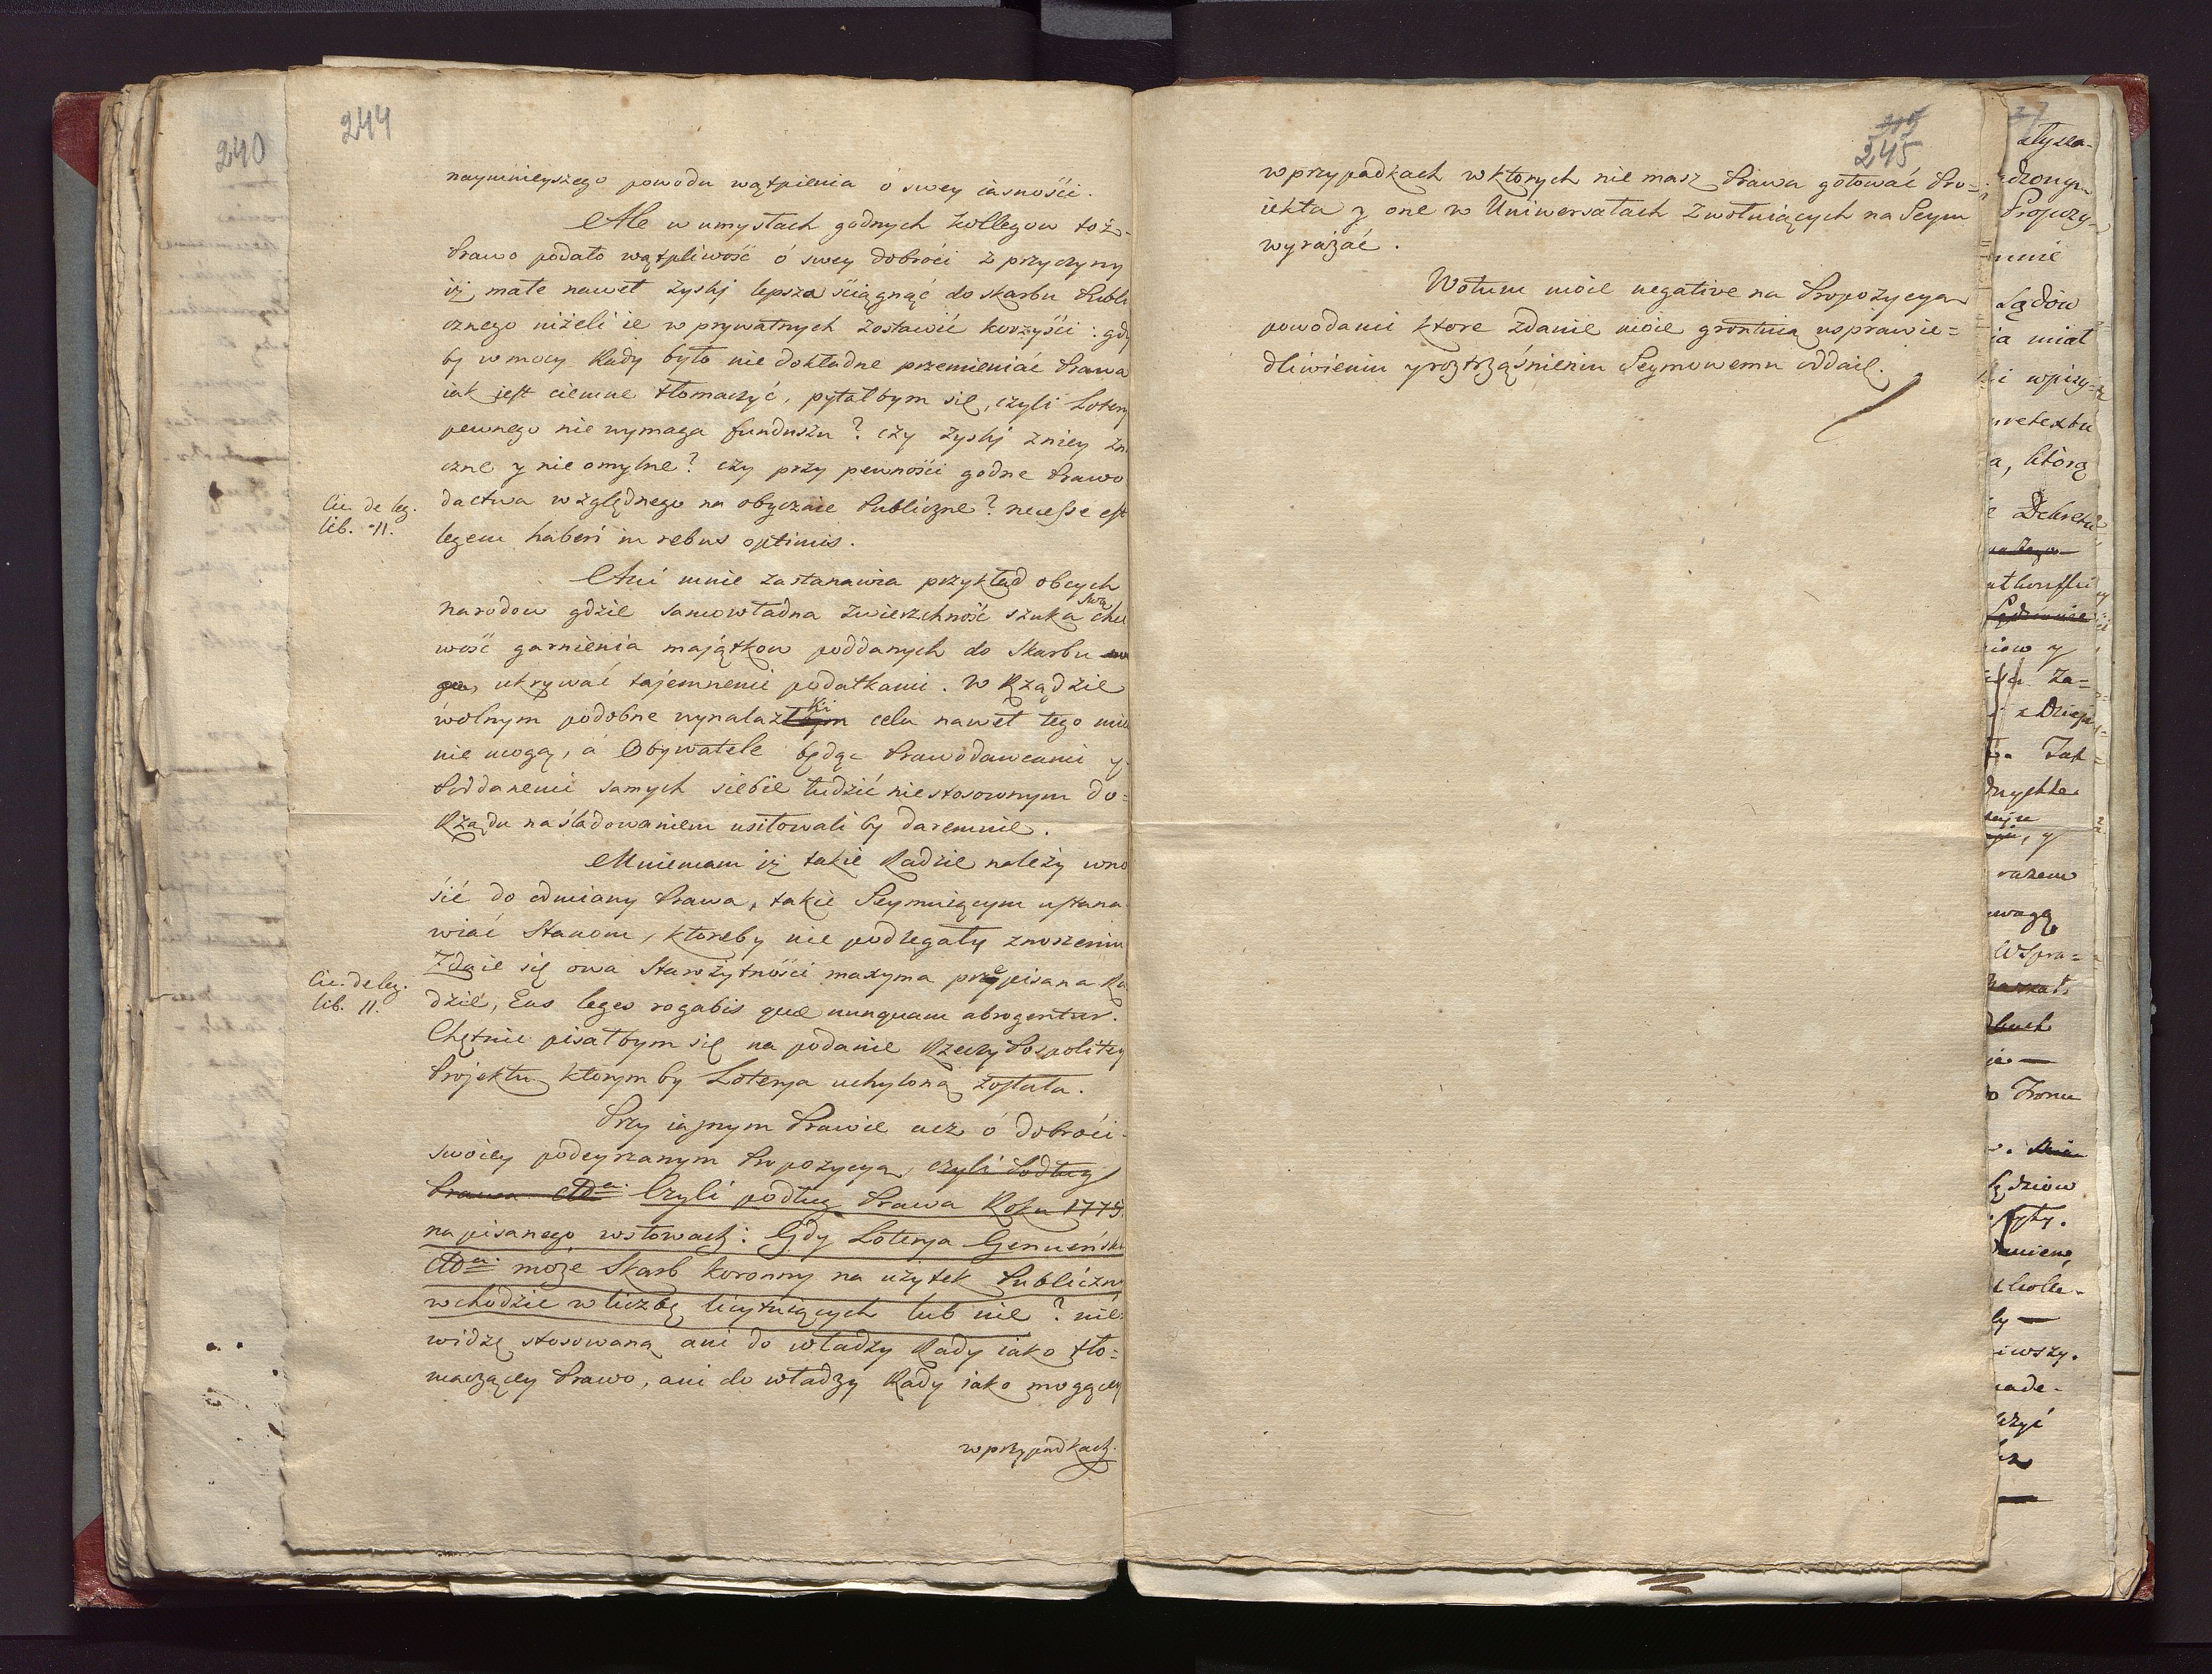 240
244
naymnieyszego powodu wątpienia ó swey iasności.
Ale w umysłach godnych Kollegow toż
Prawo podało wątpliwość ó swey dobroći z przyczyny
iż małe nawet zyski lepsza ściągnąć do skarbu Publi
cznego niżeli ie w prywatnych zostawić korzyści: gdy
by w mocy Rady było nie dokładne przemieniać Prawa
iak jest ciemne tłomaczyć, pytałbym się, czyli Lotery
pewnego nie wymaga funduszu? czy zyski z niey zna
czne y nie omylne? czy przy pewności godne Prawo
Cic. de leg.
lib. 11.
dactwa względnego na obyczaie Publiczne? necesse est
legem haberi in rebus optimis.
Ani mnie zastanawia przykład obcych
narodow gdzie samowładna zwierzchność szuka swą chci
wość garnienia majątkow poddanych do Skarbu
ukrywać tajemnemi podatkami. W Rządzie
wolnym podobne wynalazki celu nawet tego mieć
nie mogą, á Obywatele będąc Prawodawcami y
Poddanemi samych siebie łudzić nie stosownym do=
Rządu naśladowaniem usiłowali by daremnie.
Mniemam iż takie Radzie należy wno
śić do odmiany Prawa, takie Seymuiącym ustana
wiać Stanom, ktoreby nie podlegały znoszeniu
Zdaie się owa Starożytności maxyma przepisana Ra
Cic. de leg.
lib. 11.
dzie, Eas leges rogabis quæ nunquam abrogentur.
Chętnie pisałbym się na podanie Rzeczy Pospolitey
Projektu ktorym by Loterya uchyloną została.
Przy iasnym Prawie acz ó dobroći
swoiey podeyrzanym Propozycya, czyli Podług
Prawa etDa. Czyli podług Prawa Roku 1775.
napisanego w słowach: Gdy Loterya Genueńska
etDa. może Skarb koronny na użytek Publiczny
wchodzić w liczbę licytuiących lub nie? nie
widzę stosowaną ani do władzy Rady iako tło=
maczącey Prawo, ani do władzy Rady iako mogącey
w przypadkach
245
w przypadkach w ktorych nie masz Prawa gotować Pro=
iekta y one w Uniwersałach Zwołuiących na Seym
wyrażać.
Wotum moie negative na Propozycyą
powodami ktore zdanie moie grontuią usprawie=
dliwieniu y roztrząśnieniu Seymowemu oddaię.